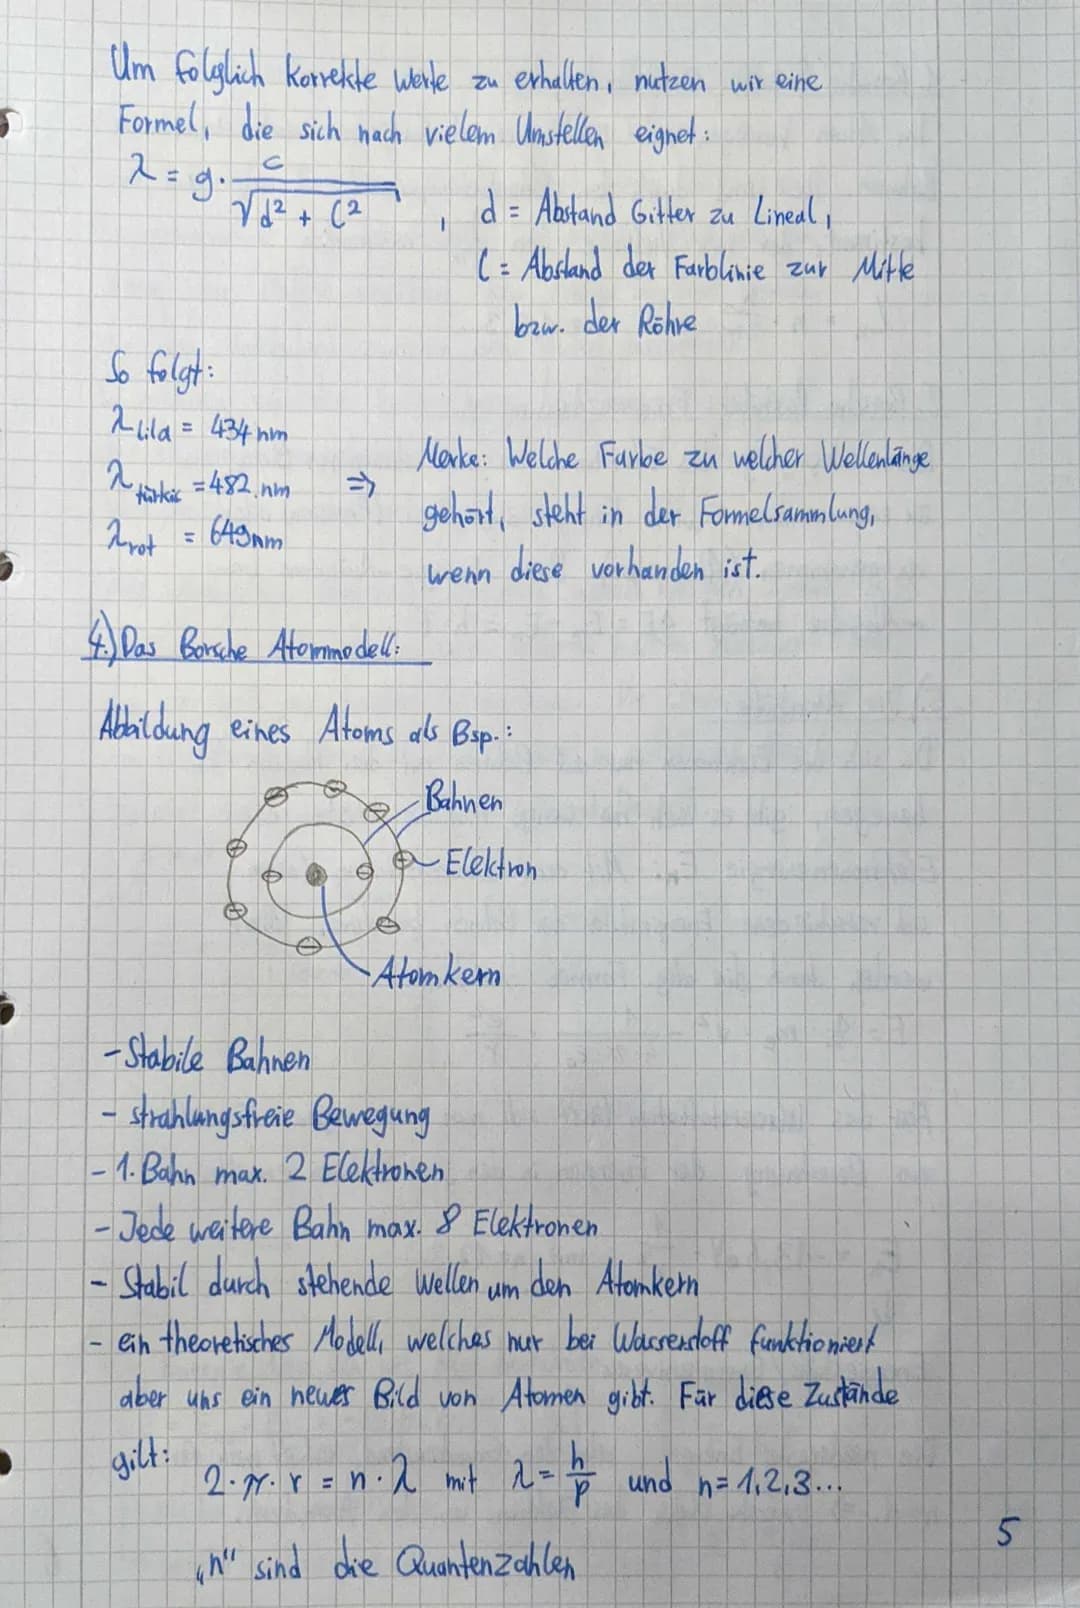 Um folglich korrekte Werte zu erhalten, nutzen wir eine
Formel, die sich nach vielem Umstellen eignet:
λ = g · c / √(d² + l²) , d = Abstand Gitter zu Lineal,
l = Abstand der Farblinie zur Mitte
bzw. der Röhre
So folgt:
λ Lila = 434 nm
λ türkis = 482 nm
λ rot = 649 nm
⇒ Merke: Welche Farbe zu welcher Wellenlänge
gehört, steht in der Formelsammlung,
wenn diese vorhanden ist.
4.) Das Borsche Atommodell:
Abbildung eines Atoms als Bsp.:
Bahnen
Elektron
Atomkern
- Stabile Bahnen
- strahlungsfreie Bewegung
- 1. Bahn max. 2 Elektronen
- Jede weitere Bahn max. 8 Elektronen
- Stabil durch stehende Wellen um den Atomkern
- ein theoretisches Modell, welches nur bei Wasserstoff funktioniert
aber uns ein neues Bild von Atomen gibt. Für diese Zustände
gilt: 2 · π · r = n · λ mit λ = h/p und n = 1,2,3...
„n" sind die Quantenzahlen
5